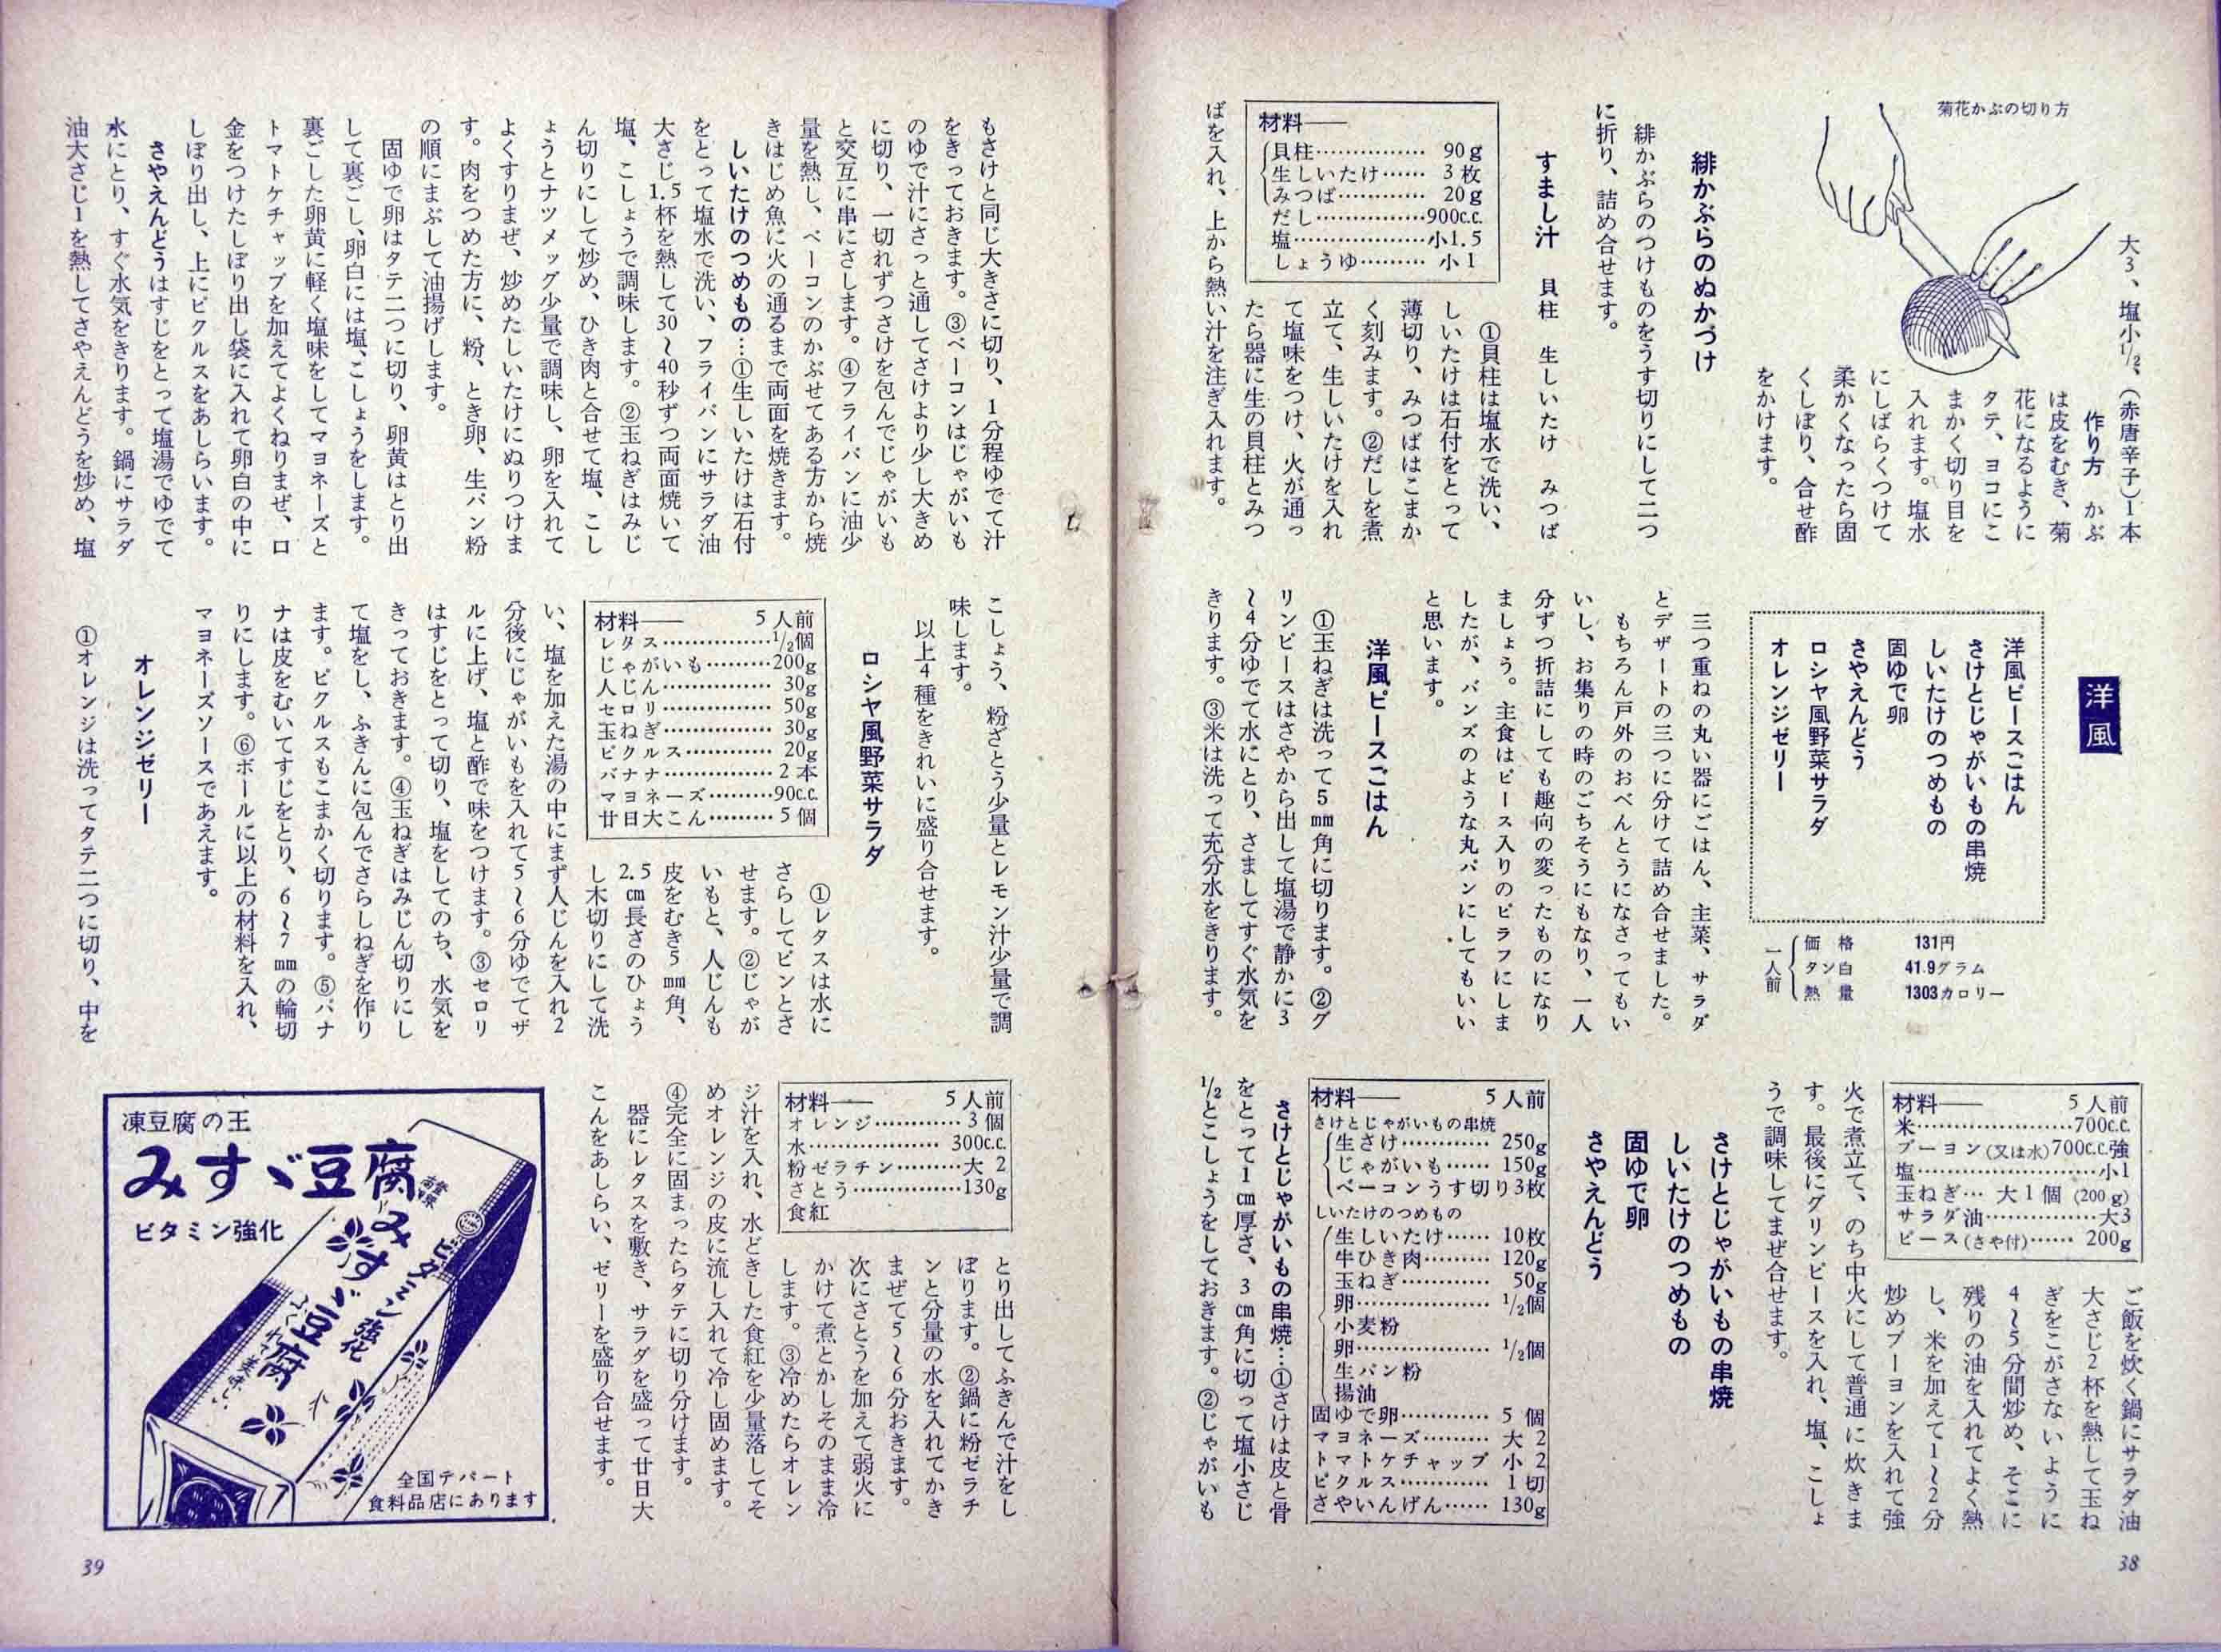 菊花かぶの切り方
大3、塩小½、(赤唐辛子)1本
作り方　かぶ
は皮をむき、菊
花になるように
タテ、ヨコにこ
まかく切り目を
入れます。塩水
にしばらくつけて
柔かくなったら固
くしぼり、合せ酢
をかけます。
緋かぶらのぬかづけ
緋かぶらのつけものをうす切りにして二つ
に折り、詰め合せます。
すまし汁　貝柱　生しいたけ　みつば
材料——
貝柱……………90g
生しいたけ……3枚
みつば…………20g
だし……………900c.c.
塩………………小1.5
しょうゆ………小1
①貝柱は塩水で洗い、
しいたけは石付をとって
薄切り、みつばはこまか
く刻みます。②だしを煮
立て、生しいたけを入れ
て塩味をつけ、火が通っ
たら器に生の貝柱とみつ
ばを入れ、上から熱い汁を注ぎ入れます。
洋風
洋風ピースごはん
さけとじゃがいもの串焼
しいたけのつめもの
固ゆで卵
さやえんどう
ロシヤ風野菜サラダ
オレンジゼリー
一人前
価格　131円
タン白　41.9グラム
熱量　1303カロリー
三つ重ねの丸い器にごはん、主菜、サラダ
とデザートの三つに分けて詰め合せました。
もちろん戸外のおべんとうになさってもい
いし、お集りの時のごちそうにもなり、一人
分ずつ折詰にしても趣向の変ったものになり
ましょう。主食はピース入りのピラフにしま
したが、バンズのような丸パンにしてもいい
と思います。
洋風ピースごはん
①玉ねぎは洗って5mm角に切ります。②グ
リンピースはさやから出して塩湯で静かに3
〜4分ゆでて水にとり、さましてすぐ水気を
きります。③米は洗って充分水をきります。
材料——　5人前
米………………700c.c.
ブーヨン(又は水)700c.c.強
塩………………小1
玉ねぎ…大1個(200g)
サラダ油………大3
ピース(さや付)……200g
ご飯を炊く鍋にサラダ油
大さじ2杯を熱して玉ね
ぎをこがさないように
4〜5分間炒め、そこに
残りの油を入れてよく熱
し、米を加えて1〜2分
炒めブーヨンを入れて強
火で煮立て、のち中火にして普通に炊きま
す。最後にグリンピースを入れ、塩、こしょ
うで調味してまぜ合せます。
さけとじゃがいもの串焼
しいたけのつめもの
固ゆで卵
さやえんどう
材料——　5人前
さけとじゃがいもの串焼
生さけ…………250g
じゃがいも……150g
ベーコンうす切り3枚
しいたけのつめもの
生しいたけ……10枚
牛ひき肉………120g
玉ねぎ…………50g
卵………………½個
小麦粉
卵………………½個
生パン粉
揚油
固ゆで卵…………5個
マヨネーズ………大2
トマトケチャップ　小2
ピクルス…………1切
さやいんげん……130g
さけとじゃがいもの串焼…①さけは皮と骨
をとって1cm厚さ、3cm角に切って塩小さじ
½とこしょうをしておきます。②じゃがいも
38
もさけと同じ大きさに切り、1分程ゆでて汁
をきっておきます。③ベーコンはじゃがいも
のゆで汁にさっと通してさけより少し大きめ
に切り、一切れずつさけを包んでじゃがいも
と交互に串にさします。④フライパンに油少
量を熱し、ベーコンのかぶせてある方から焼
きはじめ魚に火の通るまで両面を焼きます。
しいたけのつめもの…①生しいたけは石付
をとって塩水で洗い、フライパンにサラダ油
大さじ1.5杯を熱して30〜40秒ずつ両面焼いて
塩、こしょうで調味します。②玉ねぎはみじ
ん切りにして炒め、ひき肉と合せて塩、こし
ょうとナツメッグ少量で調味し、卵を入れて
よくすりまぜ、炒めたしいたけにぬりつけま
す。肉をつめた方に、粉、とき卵、生パン粉
の順にまぶして油揚げします。
固ゆで卵はタテ二つに切り、卵黄はとり出
して裏ごし、卵白には塩、こしょうをします。
裏ごした卵黄に軽く塩味をしてマヨネーズと
トマトケチャップを加えてよくねりまぜ、口
金をつけたしぼり出し袋に入れて卵白の中に
しぼり出し、上にピクルスをあしらいます。
さやえんどうはすじをとって塩湯でゆでて
水にとり、すぐ水気をきります。鍋にサラダ
油大さじ1を熱してさやえんどうを炒め、塩
こしょう、粉ざとう少量とレモン汁少量で調
味します。
以上4種をきれいに盛り合せます。
ロシヤ風野菜サラダ
材料——　5人前
レタス……………½個
じゃがいも………200g
人じん……………30g
セロリ……………50g
玉ねぎ……………30g
ピクルス…………20g
バナナ……………2本
マヨネーズ………90c.c.
廿日大こん………5個
①レタスは水に
さらしてピンとさ
せます。②じゃが
いもと、人じんも
皮をむき5mm角、
2.5cm長さのひょう
し木切りにして洗
い、塩を加えた湯の中にまず人じんを入れ2
分後にじゃがいもを入れて5〜6分ゆでてザ
ルに上げ、塩と酢で味をつけます。③セロリ
はすじをとって切り、塩をしてのち、水気を
きっておきます。④玉ねぎはみじん切りにし
て塩をし、ふきんに包んでさらしねぎを作り
ます。ピクルスもこまかく切ります。⑤バナ
ナは皮をむいてすじをとり、6〜7mmの輪切
りにします。⑥ボールに以上の材料を入れ、
マヨネーズソースであえます。
オレンジゼリー
①オレンジは洗ってタテ二つに切り、中を
材料——　5人前
オレンジ…………3個
水………………300c.c.
粉ゼラチン………大2
さとう……………130g
食紅
とり出してふきんで汁をし
ぼります。②鍋に粉ゼラチ
ンと分量の水を入れてかき
まぜて5〜6分おきます。
次にさとうを加えて弱火に
かけて煮とかしそのまま冷
します。③冷めたらオレン
ジ汁を入れ、水どきした食紅を少量落してそ
めオレンジの皮に流し入れて冷し固めます。
④完全に固まったらタテに切り分けます。
器にレタスを敷き、サラダを盛って廿日大
こんをあしらい、ゼリーを盛り合せます。
凍豆腐の王
みすゞ豆腐
ビタミン強化
みすゞ豆腐
ビタミン強化
全国デパート
食料品店にあります
39